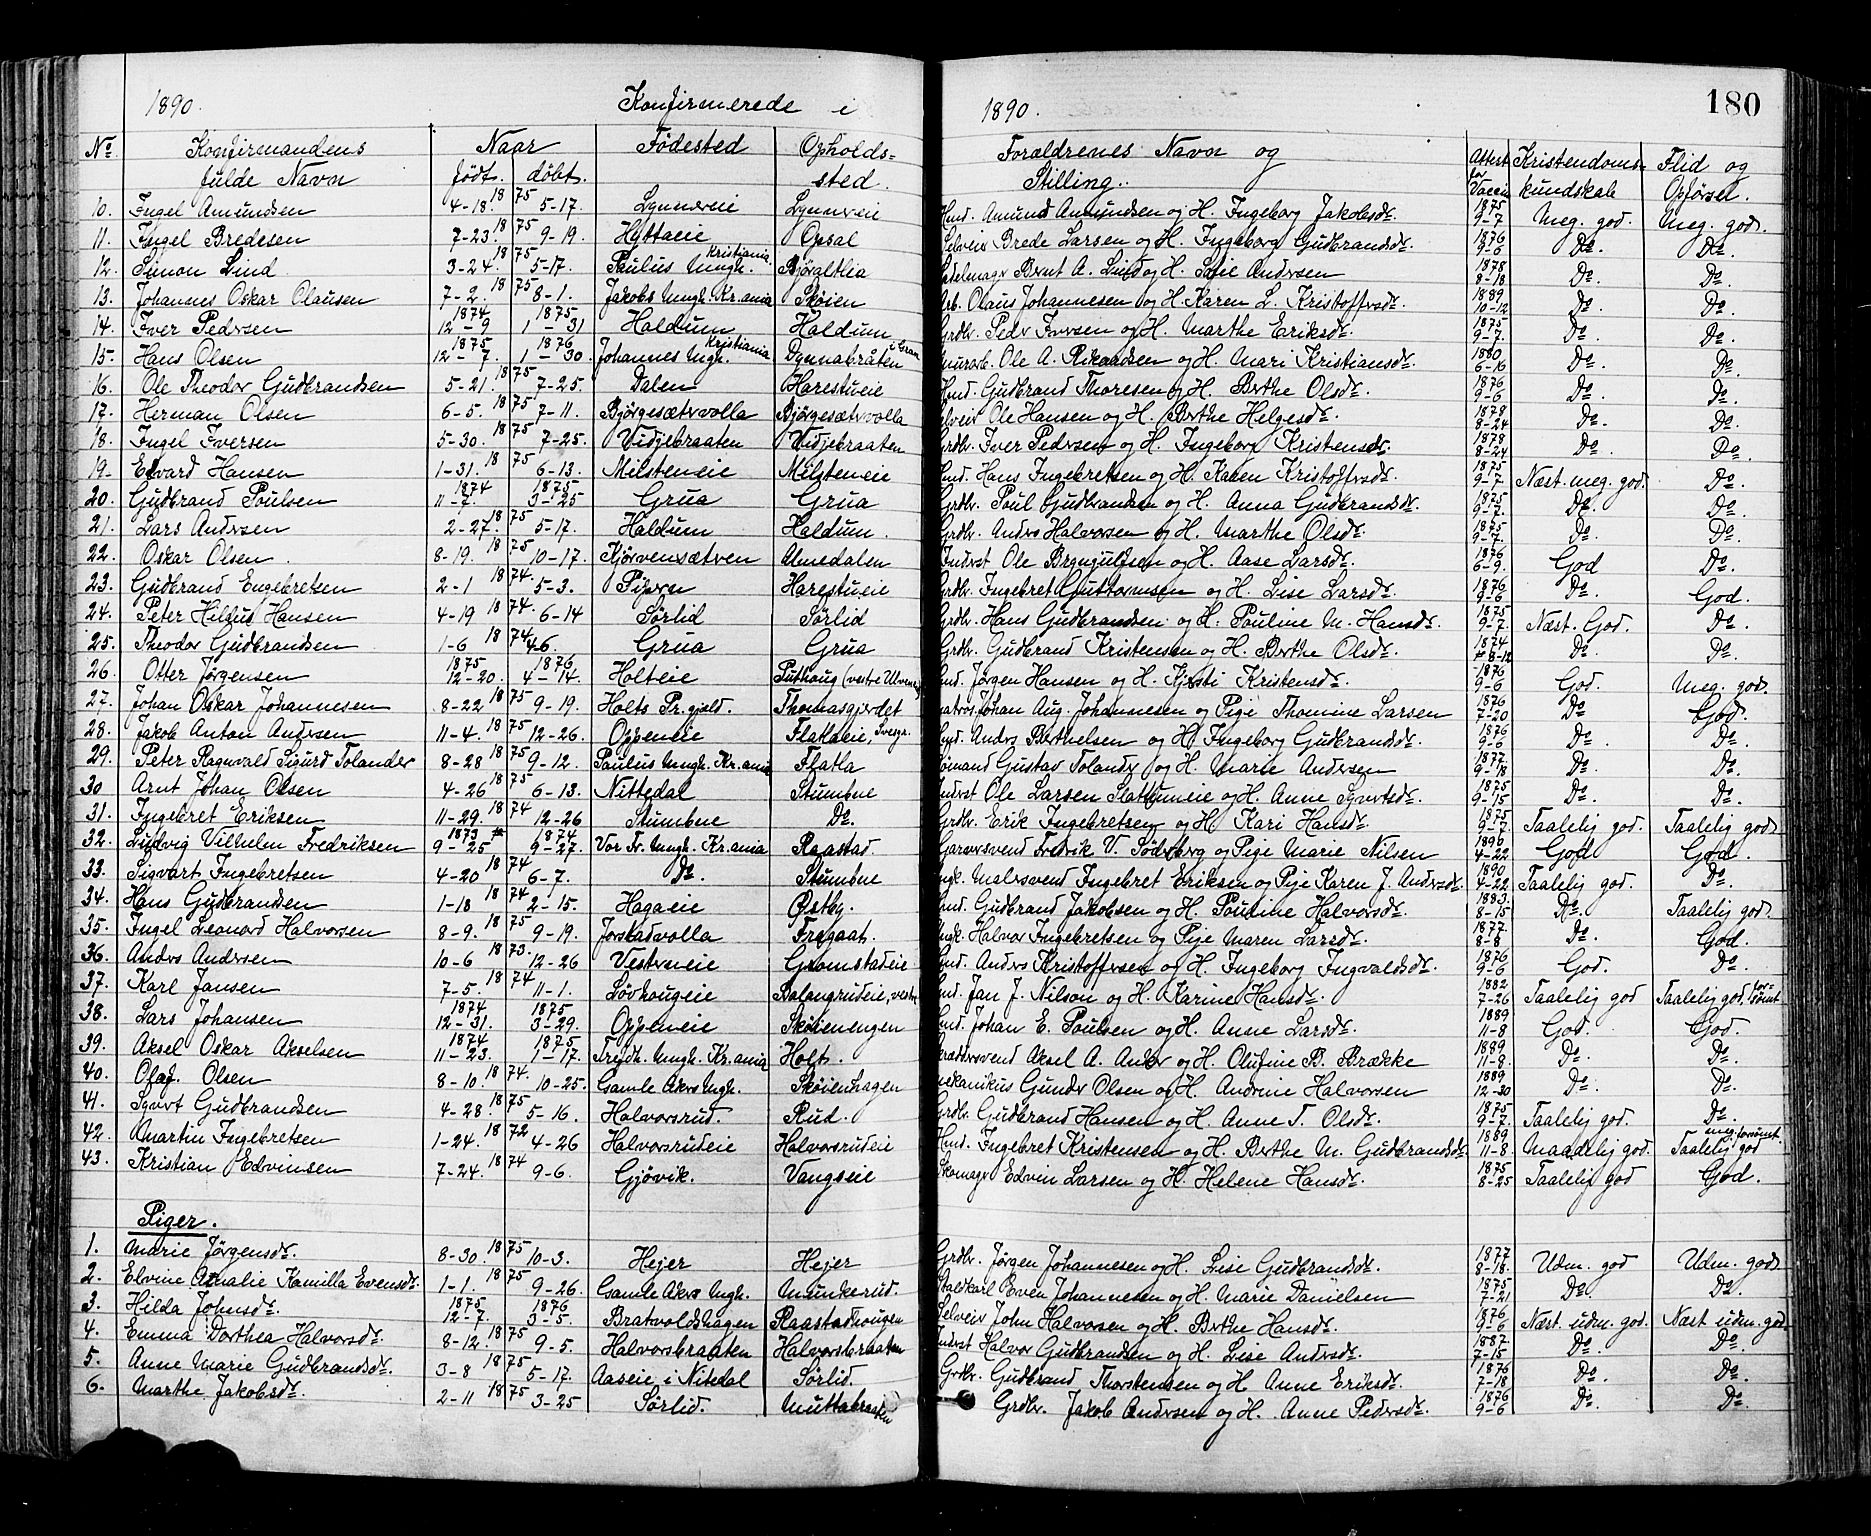 1890. Konfirmerede i 1890. 180
No Konfirmandens fulde Navn Naar født. døbt. Fødested Opholds-sted. Forældrenes Navn og Stilling. Attest for Vaccin Kristendoms-kundskab Flid og Opførsel.
10. Engel Amundsen 4-18. 1875 5-17. Lynneeie Lynneeie Hmd. Amund Amundsen og H. Ingeborg Jakobsdr. 1875 9-7 Meg. god. Meg. god.
11. Engel Bredesen 7-23. 1875 9-19. Hyttaeie Opsal Selveier Brede Larsen og H. Ingeborg Gudbrandsdr. 1876 9-6 Do. Do.
12. Simon Lind 3-24. 1875 5-17. Paulus Mngh. Kristiania. Bjørgltlia Sadelmager Bernt A. Lind og H. Sofie Andersen 1878 8-18 Do. Do.
13. Johannes Oskar Olausen 7-2. 1875 8-1. Jakobs Mngh. Kr.ania Skøien Arb. Olaus Johannesen og H. Karen L. Kristoffersdr. 1889 10-12 Do. Do.
14. Iver Pedersen 1874 12-9 1875 1-31 Haldum Haldum Grdbr. Peder Iversen og H. Marthe Eriksdr. 1875 9-7. Do. Do.
15. Hans Olsen 1875 12-7. 1876 1-30. Johannes Mngh. Kristiania Dynnabråten i Gran Murarb. Ole A. Rikardsen og H. Mari Kristiansdr. 1880 6-16 Do. Do.
16. Ole Theodor Gudbrandsen 5-21. 1875 7-25. Dalen Harestueie Hmd. Gudbrand Thoresen og H. Berthe Olsdr. 1876 9-6 Do. Do.
17. Herman Olsen 6-5. 1875 7-11. Bjørgesætervolla Bjørgesætervolla Selveier Ole Hansen og H. Berthe Helgesdr. 1878 8-24 Do. Do.
18. Engel Iversen 5-30. 1875 7-25. Vidjebraaten Vidjebraaten Grdbr. Iver Pedersen og H. Ingeborg Kristensdr. 1878 8-24 Do. Do.
19. Edvard Hansen 1-31. 1875 6-13. Milsteneie Milsteneie Hmd. Hans Ingebretsen og H. Karen Kristoffersdr. 1875 9-7 Næst. meg. god. Do.
20. Gudbrand Poulsen 1874 11-7. 1875 3-25 Grua Grua Grdbr. Poul Gudbrandsen og H. Anna Gudbrandsdr. 1875 9-7. Do. Do.
21. Lars Andersen 2-27. 1875 5-17. Haldum Haldum. Grdbr. Anders Halvorsen og H. Marthe Olsdr. 1875 9-7. Do. Do.
22. Oskar Olsen. 8-19. 1875 10-17. Kjørvensætren Almedalen Inderst Ole Brynjulfsen og H. Aase Larsdr. 1876 6-9. God Do.
23. Gudbrand Engebretsen 2-1 1874. 5-3. Piperen Harestueie Grdbr. Ingebret Guttormsen og H. Lise Larsdr. 1876 9-6 Do. God.
24. Peter Hildus Hansen 4-19 1874. 6-14 Sørlid Sørlid Grdbr. Hans Gudbrandsen og H. Pauline M. Hansdr. 1875 9-7. Næst. God. Do.
25. Theodor Gudbrandsen 1-6 1874 4-6. Grua Grua Grdbr. Gudbrand Kristensen og H. Berthe Olsdr. 1874 8-12 Do. Do.
26. Otter Jørgensen 1875 12-20. 1876 4-14. Holteie Puthoug (vestre Ulven) Hmd. Jørgen Hansen og H. Kjersti Kristensdr. 1876 9-6 God. Meg. god.
27. Johan Oskar Johannesen 8-22 1875 9-19. Holts Pr.gjæld. Thomasgjerdet Matros Johan Aug. Johannesen og Pige Thomine Larsen 1876 7-20 Do God.
28. Jakob Anton Andersen 11-4. 1875 12-26. Oppeneie Flatlaeie, Hmd. Anders Berthelsen og H. Ingeborg Gudbrandsdr. 1876 9-6 Do. Do.
29. Peter Ragnvald Sigurd Tolander 8-28 1875 9-12. Paulus Mngh. Kr.ania Flatla Sømand Gustav Tolander og H. Marie Andersen 1877 9-18 Do. Do.
30 Arnt Johan Olsen 4-26 1875 6-13. Nittedal Stumbne Inderst Ole Larsen Slattumeie og H. Anne Syvertsdr. 1875 9-15 Do. Do.
31. Ingebret Eriksen 11-29. 1874 12-26 Stumbne Do. Grdbr. Erik Ingebretsen og H. Kari Hansdr. 1875 9-7. Taalelig god. Taalelig god.
32. Ludvig Vilhelm Fredriksen 1873 9-25 1874 9-27. Vor Fr. Mngh. Kr.ania Raastad. Garversvend Fredrik V. Söderberg og Pige Marie Nilsen 1890 4-22 God God.
33. Sigvart Ingebretsen 4-20 1874 6-7. Do. Stumbne Ungk. Malersvend Ingebret Eriksen og Pige Karen J. Andersdr. 1890 4-22 Taalelig god. Do.
34. Hans Gudbrandsen 1-18 1874 2-15. Hagaeie Østby. Hmd. Gudbrand Jakobsen og H. Pauline Halvorsdr. 1883. 8-15 Do. Taalelig god.
35. Engel Leonard Halvorsen 8-9. 1875 9-19. Jorstadvolla Fregaat. Ungk. Halvor Ingebretsen og Pige Maren Larsdr. 1877. 8-8 Do. God.
36. Anders Andersen 10-6 1873. 12-26 Vestreneie Gromstadeie Hmd. Anders Kristoffersen og H. Ingeborg Ingvaldsdr. 1876 9-6 God. Do.
37. Karl Jansen 7-5. 1874 11-1. Løvhougeie Balangrudeie, vestre Hmd. Jan J. Nilson og H. Karine Hansdr. 1882 7-26 Taalelig god Taalelig god. forsømt
38. Lars Johansen 1874 12-31. 1875 3-29. Oppeneie Skøienengen Hmd. Johan E. Poulsen og H. Anne Larsdr. 1889 11-8 God. God.
39. Aksel Oskar Akselsen 1874 11-23. 1875 1-17. Trefdh. Mngh. Kr.ania Holt. Skræddersvend Aksel A. Anker og H. Olufine B. Brække 1889 11-8. Do. Do.
40. Olaf. Olsen 8-10. 1874. 10-25. Gamle Akers Mngh. Skøienhagen Mekanikus Gunder Olsen og H. Andrine Halvorsen 1889 12-30 Do. Do.
41. Syvert Gudbrandsen 4-28. 1875 5-16. Halvorsrud. Rud. Grdbr. Gudbrand Hansen og H. Anne T. Olsdr. 1875 9-7. Taalelig god. Do.
42. Martin Ingebretsen 1-24. 1872 4-26 Halvorsrudeie Halvorsrudeie Hmd. Ingebret Kristensen og H. Berthe M. Gudbrandsdr. 1889 11-8. Maadelig god. Taalelig god meg. forsømt.
43. Kristian Edvinsen 7-24. 1874 9-6. Gjøvik. Vangseie Skomager Edvin Larsen og H. Helene Hansdr. 1875 8-25 Taalelig god God.
Piger.
1. Marie Jørgensdr. 8-30. 1875 10-3. Hejer Hejer Grdbr. Jørgen Johannesen og H. Lise Gudbrandsdr. 1877 8-18. Udm. god Udm. god
2. Elvine Amalie Kamilla Evensdr. 1-1. 1875 9-26. Gamle Akers Mngh. Munkerud. Staldkarl Even Johannesen og H. Marie Danielsen 1875 7-21 Do. Do.
3. Hilda Johnsdr. 1875 12-7 1876 3-5. Bratvoldshagen Raastadhougen Selveier John Halvorsen og H. Berthe Hansdr. 1876 9-6 Næst. udm. god. Næst udm. god.
4. Emma Dorthea Halvorsdr. 8-12. 1875 9-5. Halvorsbraaten Halvorsbraaten Inderst Halvor Gudbrandsen og H. Lise Andersdr. 1887 7-15 Do. Do.
5. Anne Marie Gudbrandsdr. 3-8 1875 5-17. Aaseie i Nitedal Sørlid. Grdbr. Gudbrand Thorstensen og H. Anne Eriksdr. 1876 7-18 Do. Do.
6. Marthe Jakobsdr. 2-11 1875 3-25 Sørlid. Muttabraaten Grdbr. Jakob Andersen og H. Anne Pedersdr. 1876 9-6 Do. Do.